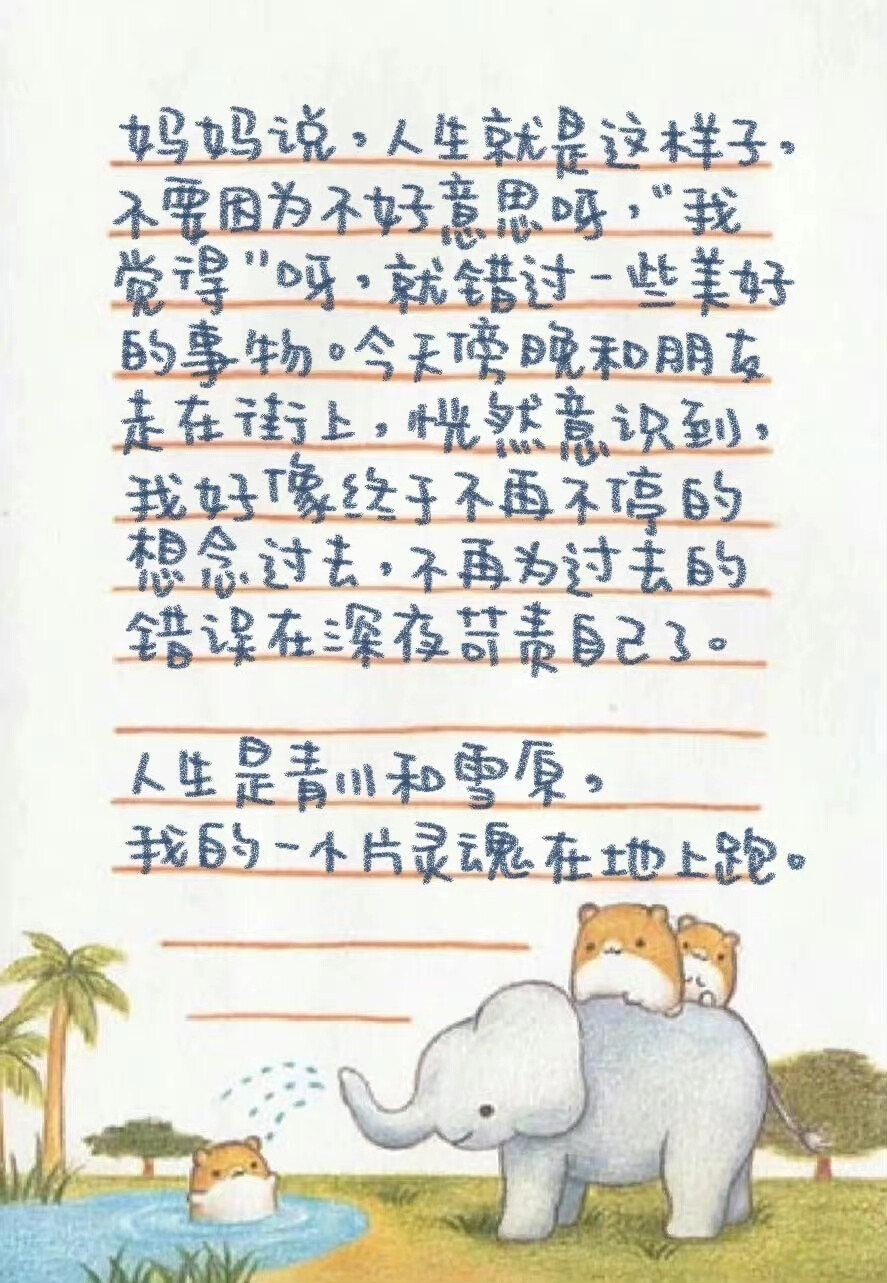 妈妈说，人生就是这样子，
不要因为不好意思呀，“我
觉得”呀，就错过一些美好
的事物。今天傍晚和朋友
走在街上，恍然意识到，
我好像终于不再不停的
想念过去，不再为过去的
错误在深夜苛责自己了。
人生是青川和雪原，
我的一个片灵魂在地上跑。